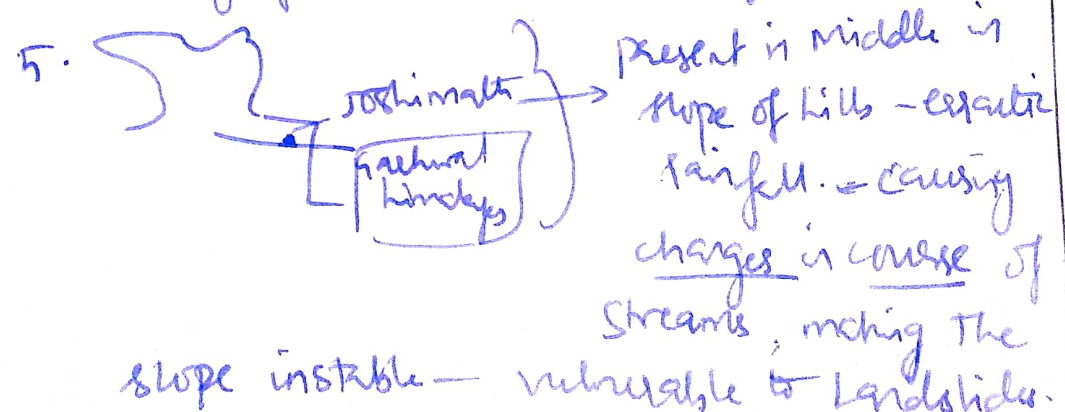 5.
Joshimath →
garhwal
himalayas
present in middle in
slope of hills - erratic
rainfall. - causing
changes in course of
streams, making the
slope instable — vulnerable to Landslides.